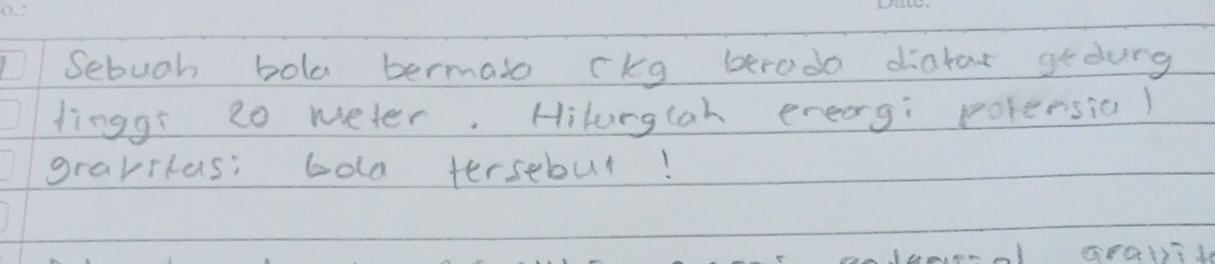 Date:
Sebuah bola bermasa 5kg berada diatas gedung
tinggi 20 meter. Hitunglah energi potensial
gravitasi bola tersebut !